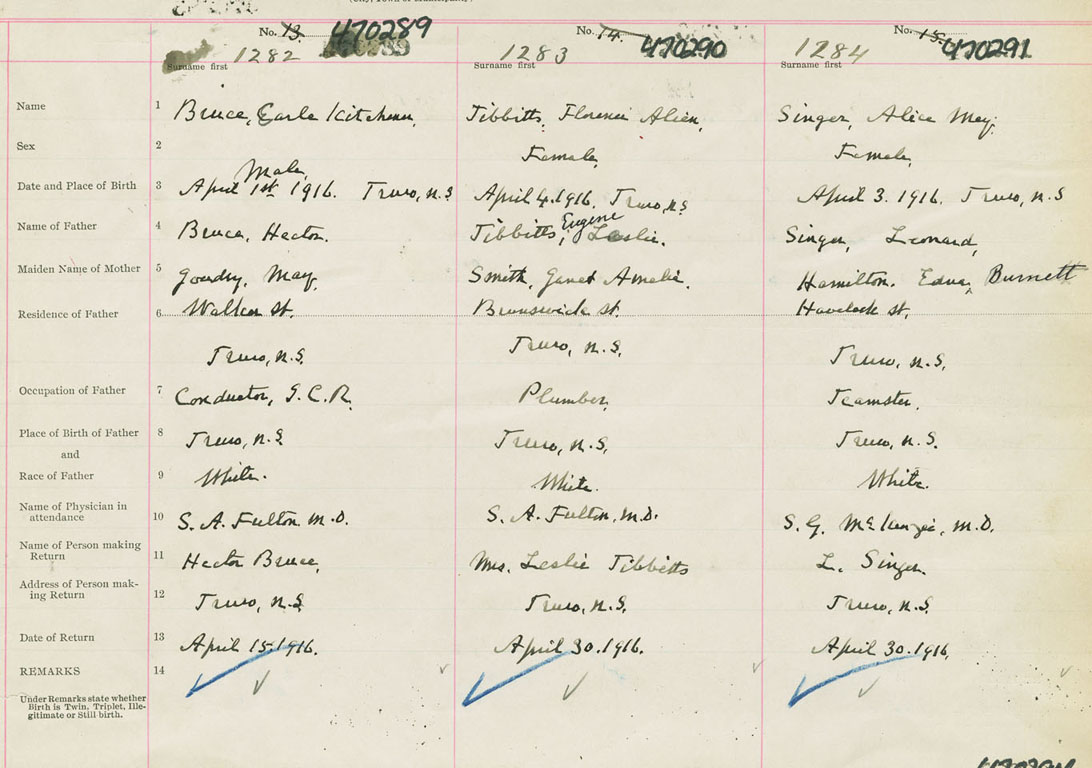 No. 13. 470289 No. 14. 470290 No. 15. 470291
1282 1283 1284
Surname first Surname first Surname first
Name 1 Bruce, Earle Kitchener, Tibbitts, Florence Alien, Singer, Alice May,
Sex 2 Male, Female, Female,
Date and Place of Birth 3 April 1st 1916. Truro, N.S April 4. 1916. Truro, N.S April 3. 1916. Truro, N.S
Name of Father 4 Bruce, Hector. Tibbitts, Eugene Leslie. Singer, Leonard,
Maiden Name of Mother 5 Gourdry, May, Smith, Janet Amelia, Hamilton, Edna, Burnett
Residence of Father 6 Walker St. Brunswick St. Havelock St,
Truro, N.S. Truro, N.S, Truro, N.S,
Occupation of Father 7 Conductor, I.C.R. Plumber, Teamster,
Place of Birth of Father 8 Truro, N.S Truro, N.S, Truro, N.S.
and
Race of Father 9 White. White. White.
Name of Physician in
attendance 10 S. A. Fulton M.D. S. A. Fulton, M.D. S. G. McKenzie, M.D.
Name of Person making
Return 11 Hector Bruce, Mrs. Leslie Tibbitts L. Singer.
Address of Person mak-
ing Return 12 Truro, N.S. Truro, N.S. Truro, N.S.
Date of Return 13 April 15. 1916. April 30. 1916. April 30. 1916,
REMARKS 14
Under Remarks state whether
Birth is Twin, Triplet, Ille-
gitimate or Still birth.